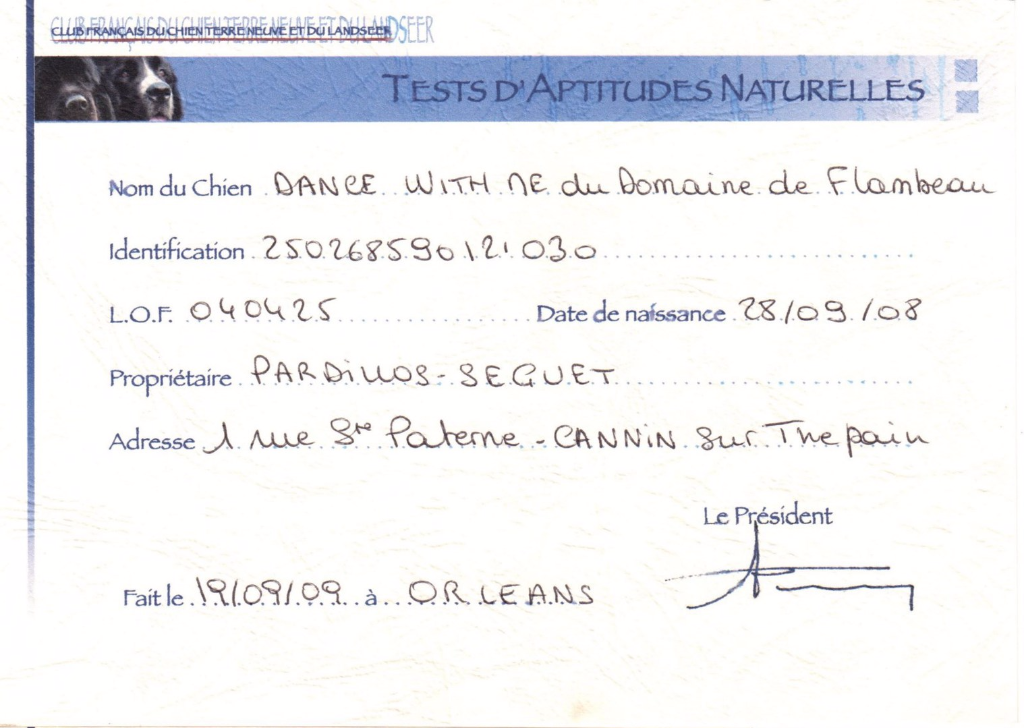 CLUB FRANÇAIS DU CHIEN TERRE NEUVE ET DU LANDSEER
TESTS D'APTITUDES NATURELLES
Nom du Chien DANCE WITH ME du Domaine de Flambeau
Identification 250268590121030
L.O.F. 040425 Date de naissance 28/09/08
Propriétaire PARDILLOS-SEGUET
Adresse 1 rue Ste Paterne - CANNIN sur Thepain
Le Président
Fait le 19/09/09 à ORLEANS